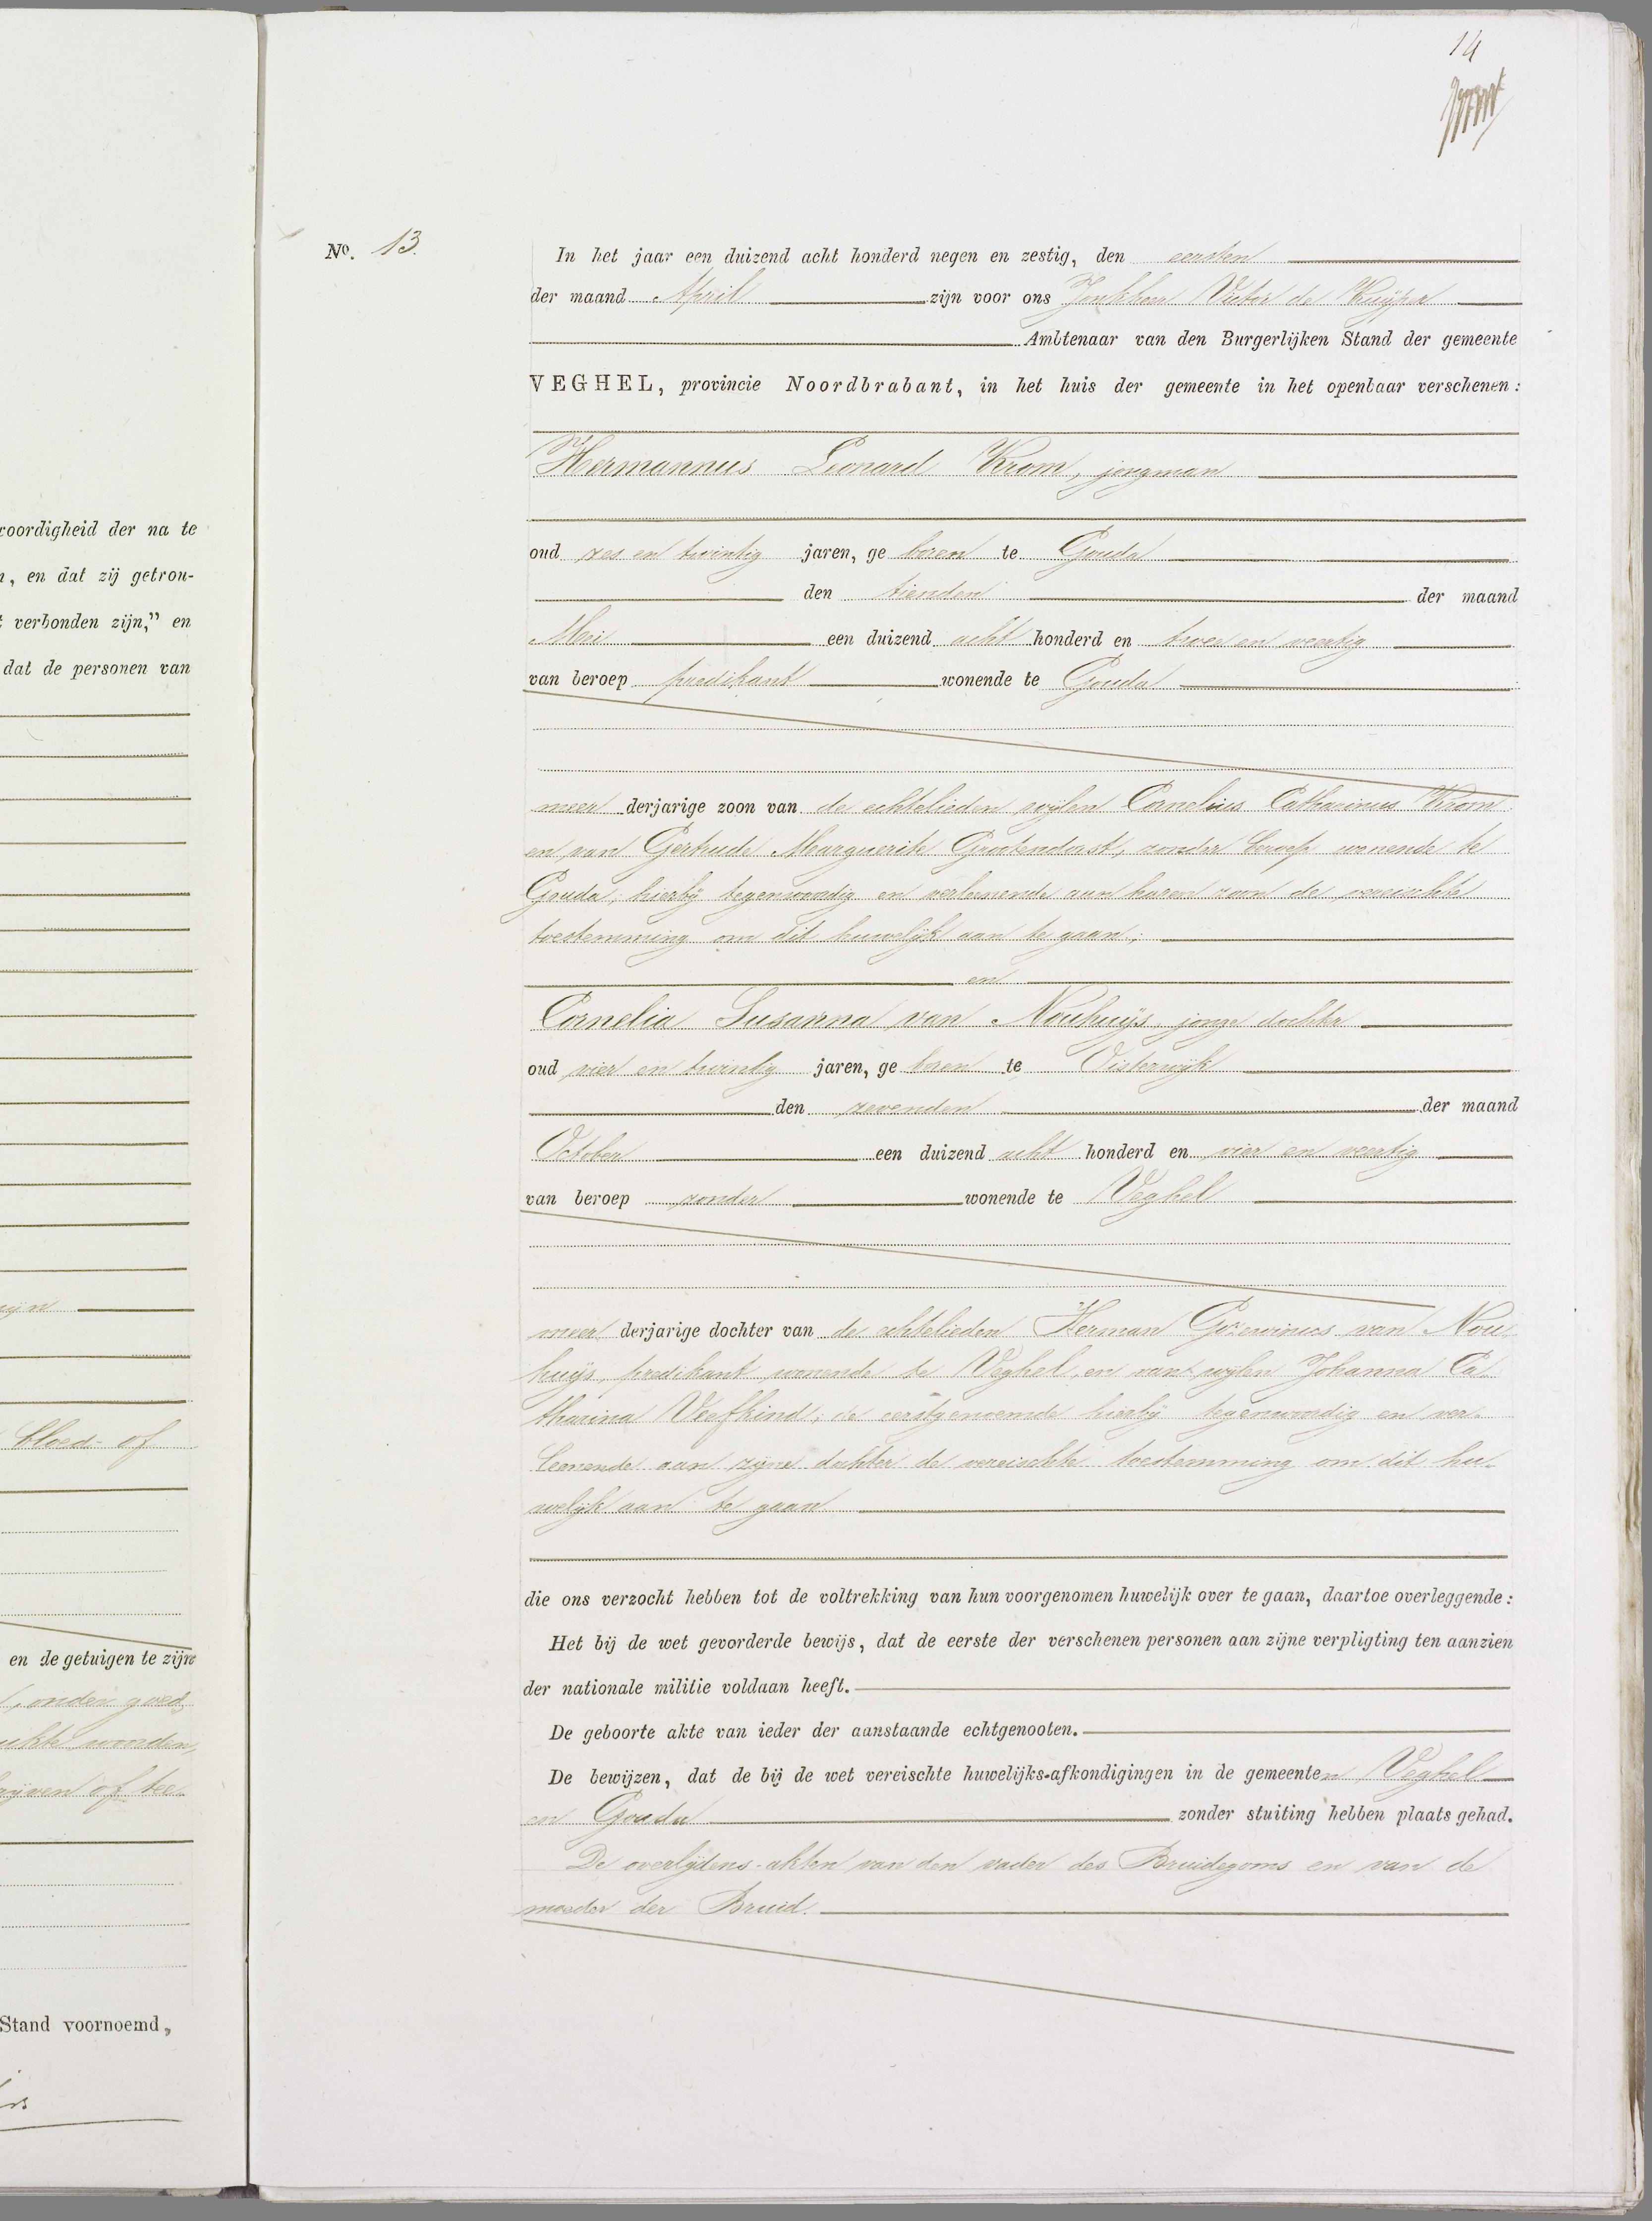 14
voordigheid der na te
n, en dat zij getrou-
t verbonden zijn," en
dat de personen van
bloed- of
en de getuigen te zijn
, onder goed
akte worden,
Stand voornoemd,
No. 13.
In het jaar een duizend acht honderd negen en zestig, den eersten
der maand April zijn voor ons Jonkheer Victor de Kuijper
Ambtenaar van den Burgerlijken Stand der gemeente
VEGHEL, provincie Noordbrabant, in het huis der gemeente in het openbaar verschenen:
Hermannus Leonard Krom, jongman
oud zes en twintig jaren, ge boren te Gouda
den tienden der maand
Mei een duizend acht honderd en twee en veertig
van beroep predikant wonende te Gouda
meer derjarige zoon van de echtelieden wijlen Cornelius Catharinus Krom
en van Gertrude Marguerite Grootendorst, zonder beroep wonende te
Gouda, hierbij tegenwoordig en verleenende aan haren zoon de vereischte
toestemming om dit huwelijk aan te gaan;
en
Cornelia Susanna van Nouhuijs, jonge dochter
oud vier en twintig jaren, ge boren te Oisterwijk
den zevenden der maand
October een duizend acht honderd en vier en veertig
van beroep zonder wonende te Veghel
meer derjarige dochter van de echtelieden Herman Gozewinus van Nou-
huijs, predikant wonende te Veghel, en van wijlen Johanna Ca-
tharina Veefkind; de eerstgenoemde hierbij tegenwoordig en ver-
leenende aan zijne dochter de vereischte toestemming om dit hu-
welijk aan te gaan
die ons verzocht hebben tot de voltrekking van hun voorgenomen huwelijk over te gaan, daartoe overleggende:
Het bij de wet gevorderde bewijs, dat de eerste der verschenen personen aan zijne verpligting ten aanzien
der nationale militie voldaan heeft.
De geboorte akte van ieder der aanstaande echtgenooten.
De bewijzen, dat de bij de wet vereischte huwelijks-afkondigingen in de gemeenten Veghel
en Gouda zonder stuiting hebben plaats gehad.
De overlijdens-akten van den vader des Bruidegoms en van de
moeder der Bruid.